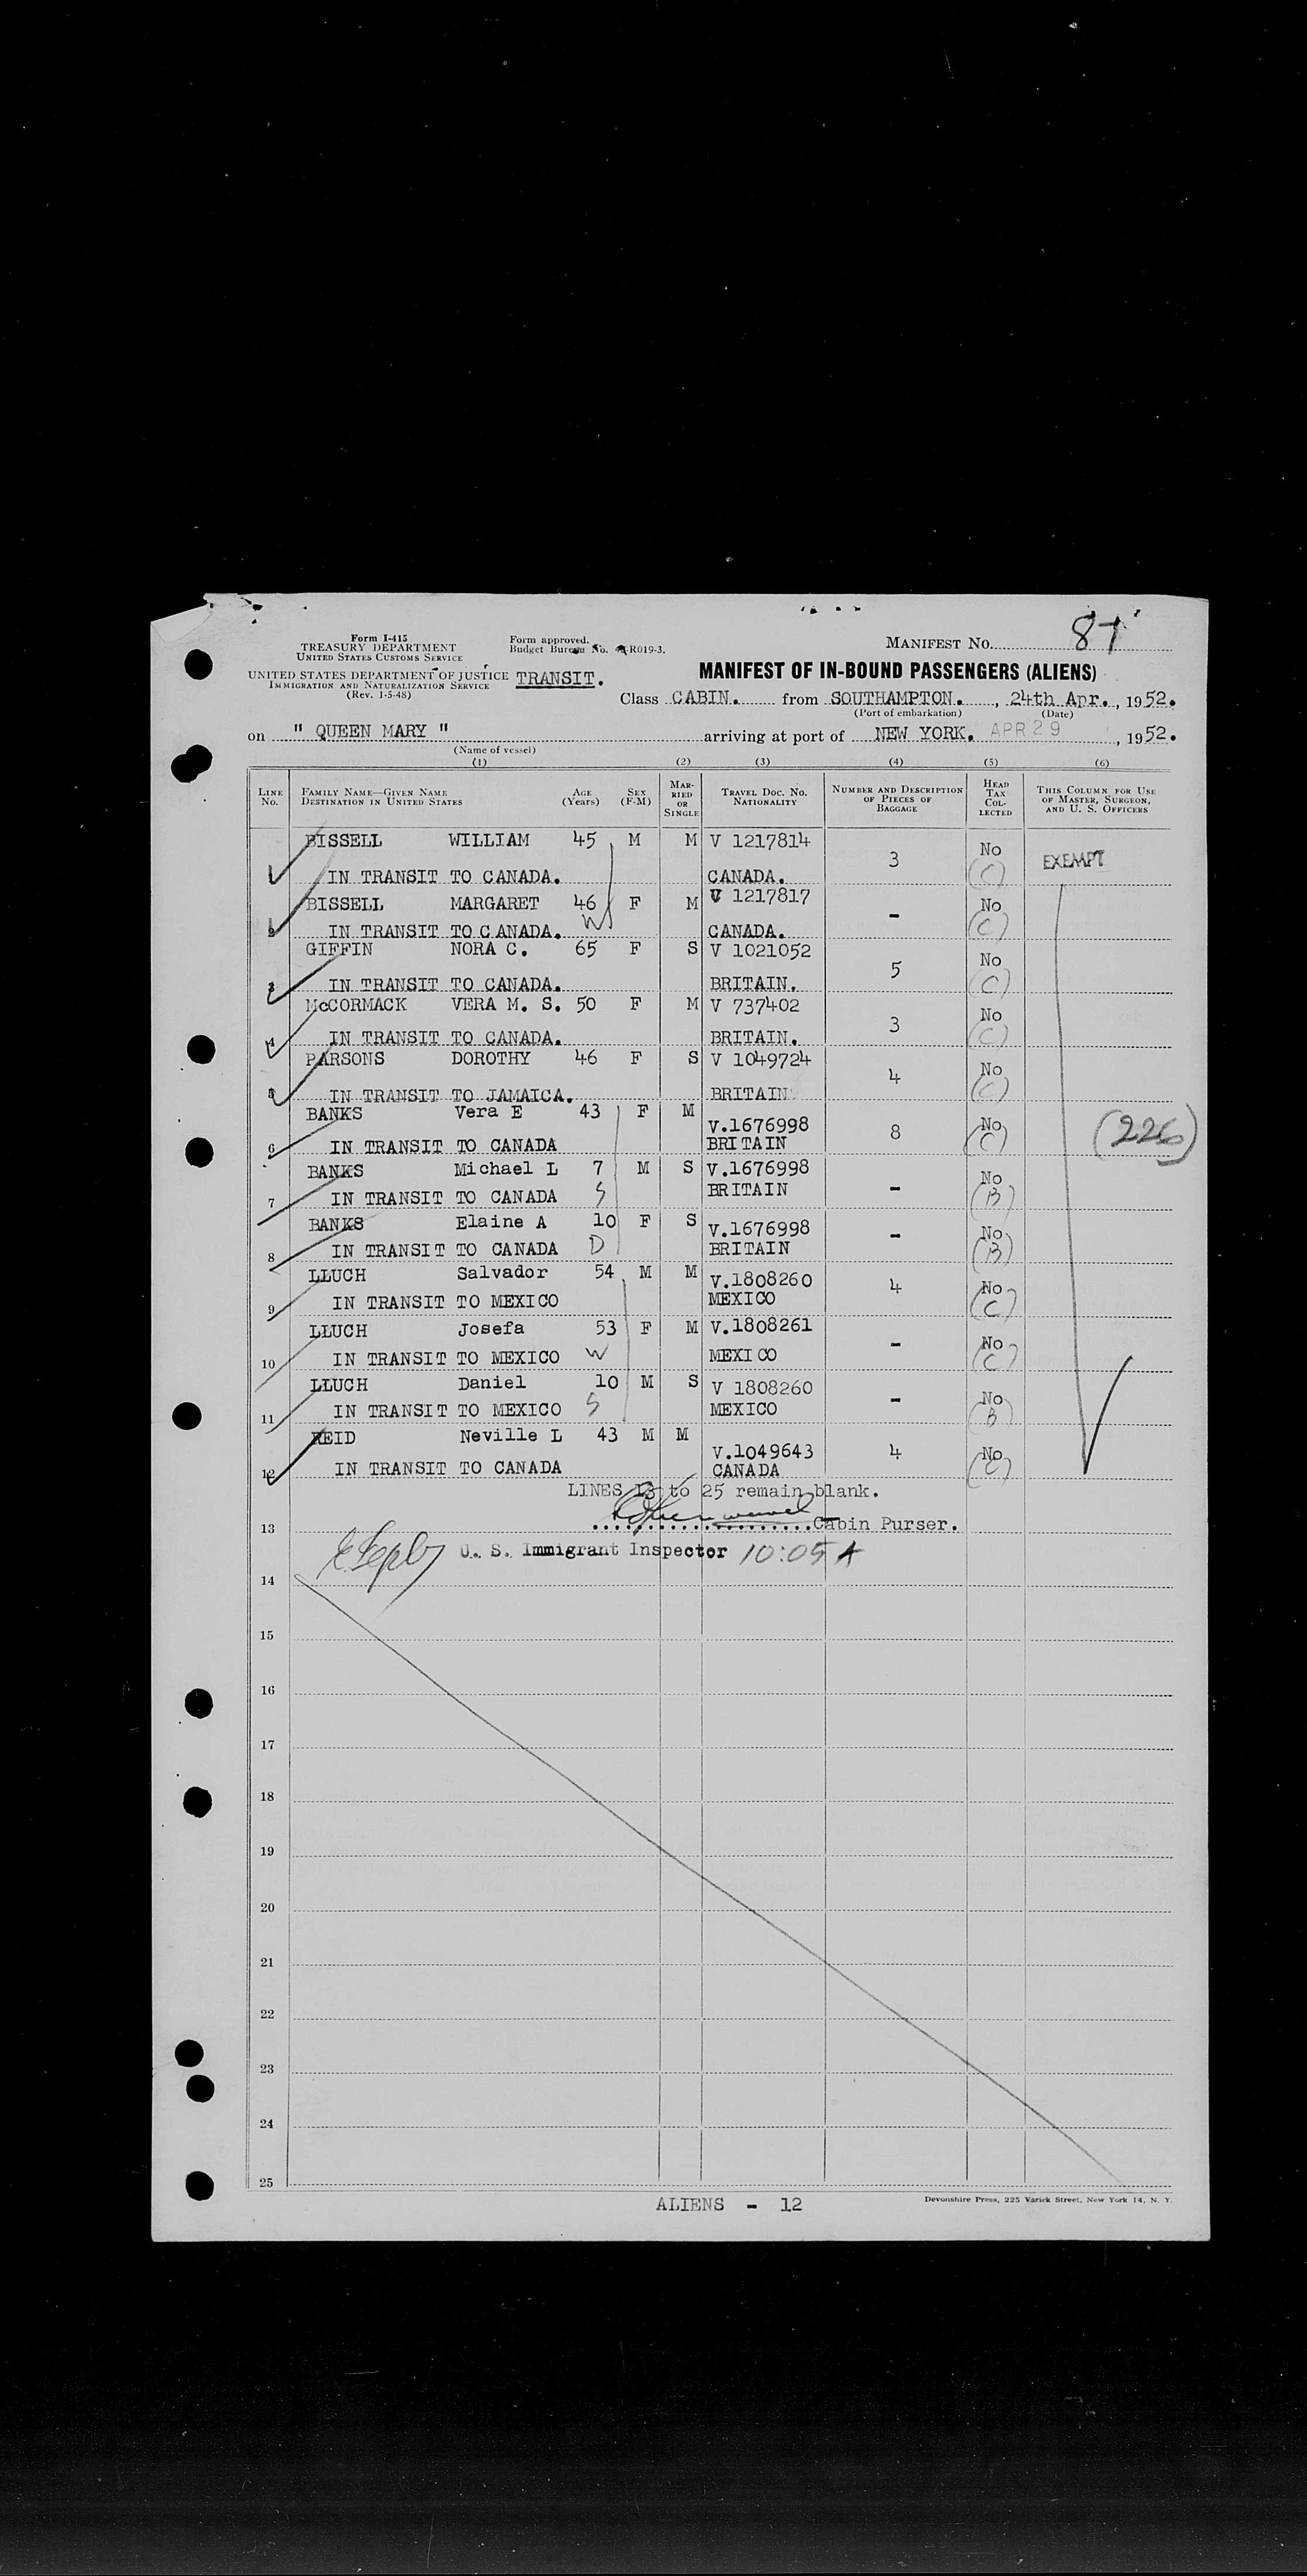 Form I-415
TREASURY DEPARTMENT
UNITED STATES CUSTOMS SERVICE
UNITED STATES DEPARTMENT OF JUSTICE
IMMIGRATION AND NATURALIZATION SERVICE
(Rev. 1-5-48)
Form approved.
Budget Bureau No. R019-3.
TRANSIT.
MANIFEST NO. 87
MANIFEST OF IN-BOUND PASSENGERS (ALIENS)
Class CABIN. from SOUTHAMPTON. , 24th Apr. , 1952.
(Port of embarkation) (Date)
on " QUEEN MARY " arriving at port of NEW YORK. APR 29 , 1952.
(Name of vessel)
(1) (2) (3) (4) (5) (6)
LINE NO. FAMILY NAME—GIVEN NAME DESTINATION IN UNITED STATES AGE (Years) SEX (F-M) MARRIED OR SINGLE TRAVEL DOC. NO. NATIONALITY NUMBER AND DESCRIPTION OF PIECES OF BAGGAGE HEAD TAX COLLECTED THIS COLUMN FOR USE OF MASTER, SURGEON, AND U. S. OFFICERS
BISSELL WILLIAM 45 M M V 1217814 3 No EXEMPT
1 IN TRANSIT TO CANADA. CANADA. (C)
BISSELL MARGARET 46 F M V 1217817 - No
2 IN TRANSIT TO CANADA. W CANADA. (C)
GIFFIN NORA C. 65 F S V 1021052 5 No
3 IN TRANSIT TO CANADA. BRITAIN. (C)
McCORMACK VERA M. S. 50 F M V 737402 3 No
4 IN TRANSIT TO CANADA. BRITAIN. (C)
PARSONS DOROTHY 46 F S V 1049724 4 No
5 IN TRANSIT TO JAMAICA. BRITAIN (C)
BANKS Vera E 43 F M V.1676998 8 No (226)
6 IN TRANSIT TO CANADA BRITAIN (C)
BANKS Michael L 7 M S V.1676998 - No
7 IN TRANSIT TO CANADA S BRITAIN (B)
BANKS Elaine A 10 F S V.1676998 - No
8 IN TRANSIT TO CANADA D BRITAIN (B)
LLUCH Salvador 54 M M V.1808260 4 No
9 IN TRANSIT TO MEXICO MEXICO (C)
LLUCH Josefa 53 F M V.1808261 - No
10 IN TRANSIT TO MEXICO W MEXICO (C)
LLUCH Daniel 10 M S V 1808260 - No
11 IN TRANSIT TO MEXICO S MEXICO (B)
REID Neville L 43 M M V.1049643 4 No
12 IN TRANSIT TO CANADA CANADA (C)
LINES 13 to 25 remain blank.
13 Cabin Purser.
U. S. Immigrant Inspector 10:05 A
14
15
16
17
18
19
20
21
22
23
24
25
ALIENS - 12
Devonshire Press, 225 Varick Street, New York 14, N. Y.